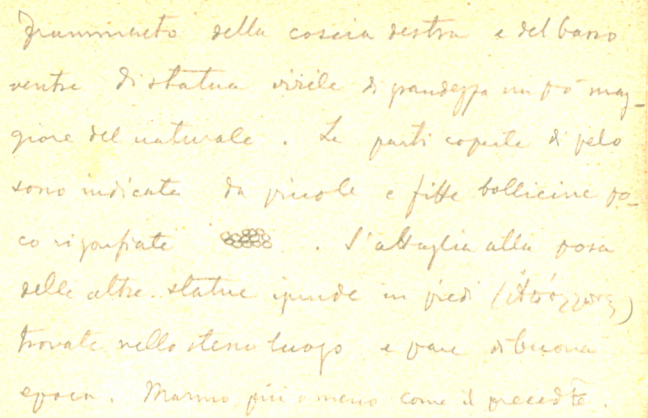 Frammento della coscia destra e del basso
ventre di statua virile di grandezza un pò mag-
giore del naturale. Le parti coperte di pelo
sono indicate da piccole e fitte bollicine po-
co rigonfiate . S'attaglia alla posa
delle altre statue ignude in piedi
trovate nello stesso luogo e pare di buona
epoca. Marmo più o meno come il precedte.